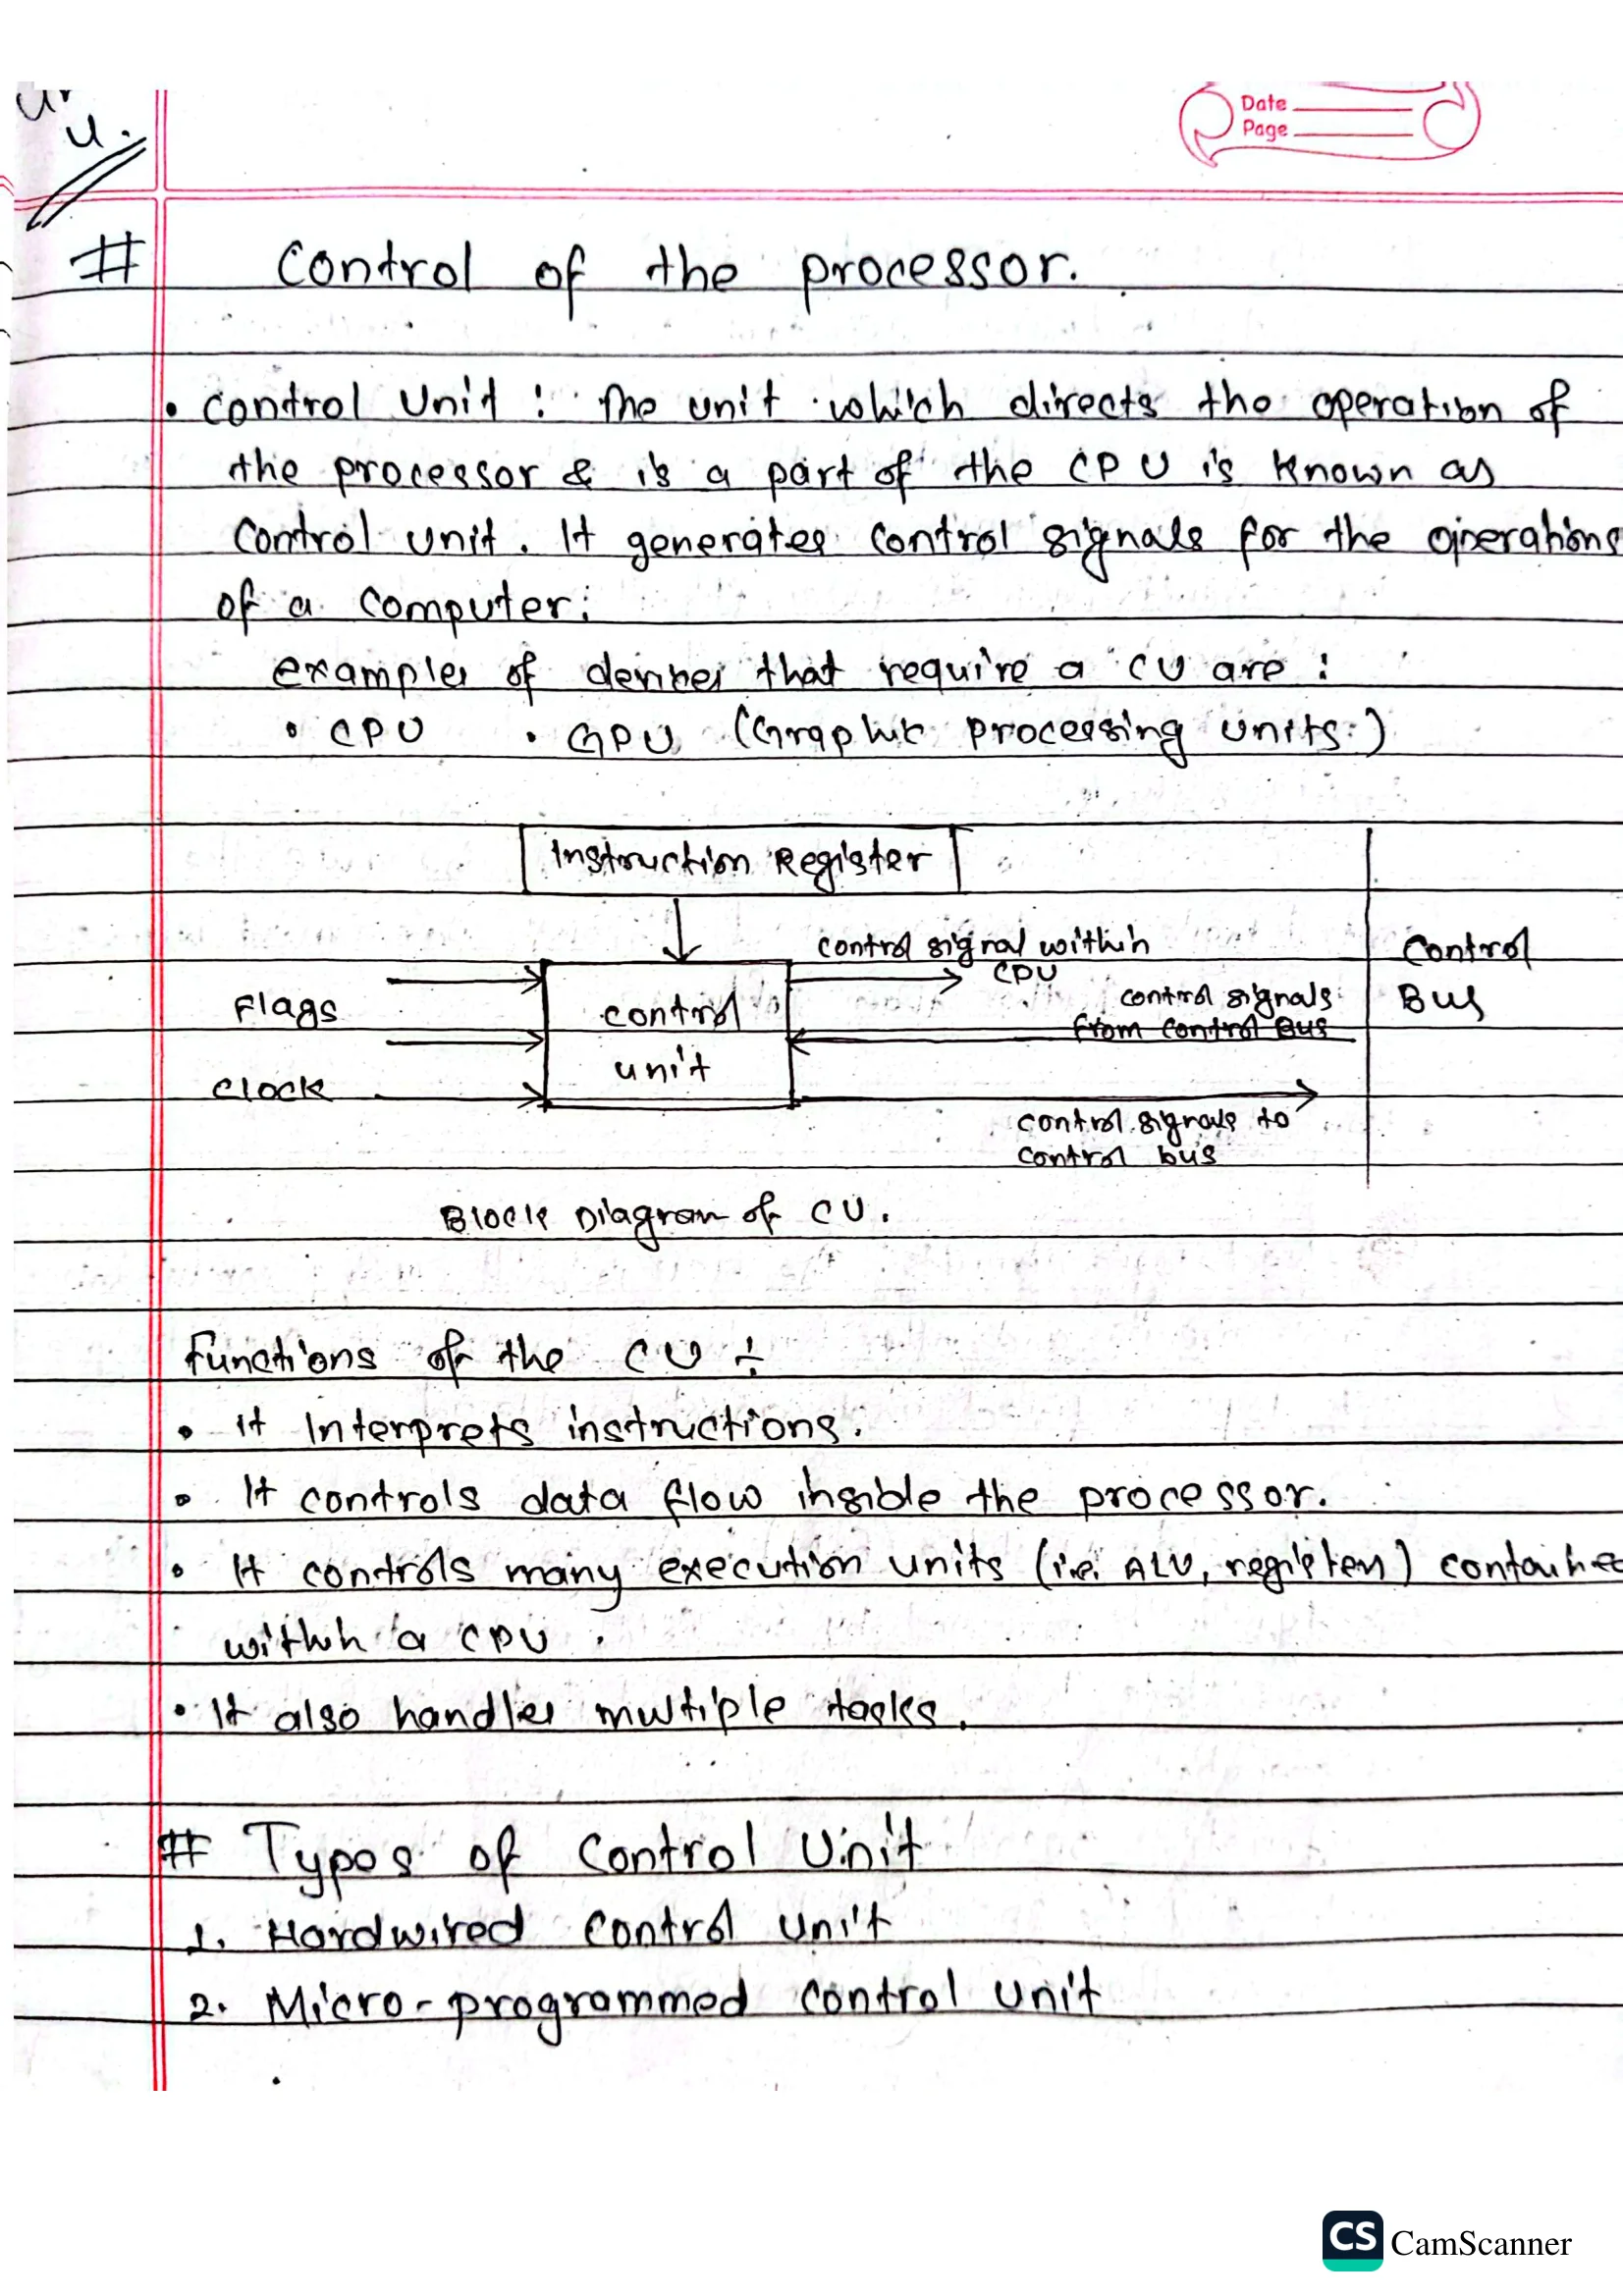 u.
Date
Page
# Control of the processor.
• Control Unit : The unit which directs the operation of
the processor & is a part of the CPU is known as
control unit. It generates control signals for the operations
of a computer.
examples of devices that require a CU are :
• CPU • GPU (Graphic processing units.)
Instruction Register
control signal within
CPU
Control
Bus
Flags
control
unit
control signals
from control Bus
clock
control signals to
control bus
Block Diagram of CU.
Functions of the CU ÷
• It Interprets instructions.
• It controls data flow inside the processor.
• It controls many execution units (i.e. ALU, registers) containe
within a CPU.
• It also handles multiple tasks.
# Types of Control Unit
1. Hardwired Control unit
2. Micro-programmed control unit
CS CamScanner